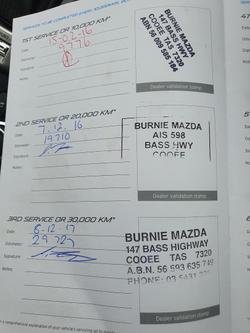 SERVICES TO BE COMPLETED EVERY
1ST SERVICE OR 10,000 KM*
Date: 15-02-16
Odometer: 9776
Signature:
Notes:
BURNIE MAZDA
147 BASS HWY
COOEE TAS 7320
ABN 56 009 585 184
Dealer validation stamp
2ND SERVICE OR 20,000 KM*
Date: 7.12.16
Odometer: 19710
Signature:
Notes:
BURNIE MAZDA
AIS 598
BASS HWY
COOEE
Dealer validation stamp
3RD SERVICE OR 30,000 KM*
Date: 8-12-17
Odometer: 29727
Signature:
Notes:
BURNIE MAZDA
147 BASS HIGHWAY
COOEE TAS 7320
A.B.N. 56 593 635 74
PHONE: 03 5431
Dealer validation stamp
comprehensive explanation of your vehicle's servicing